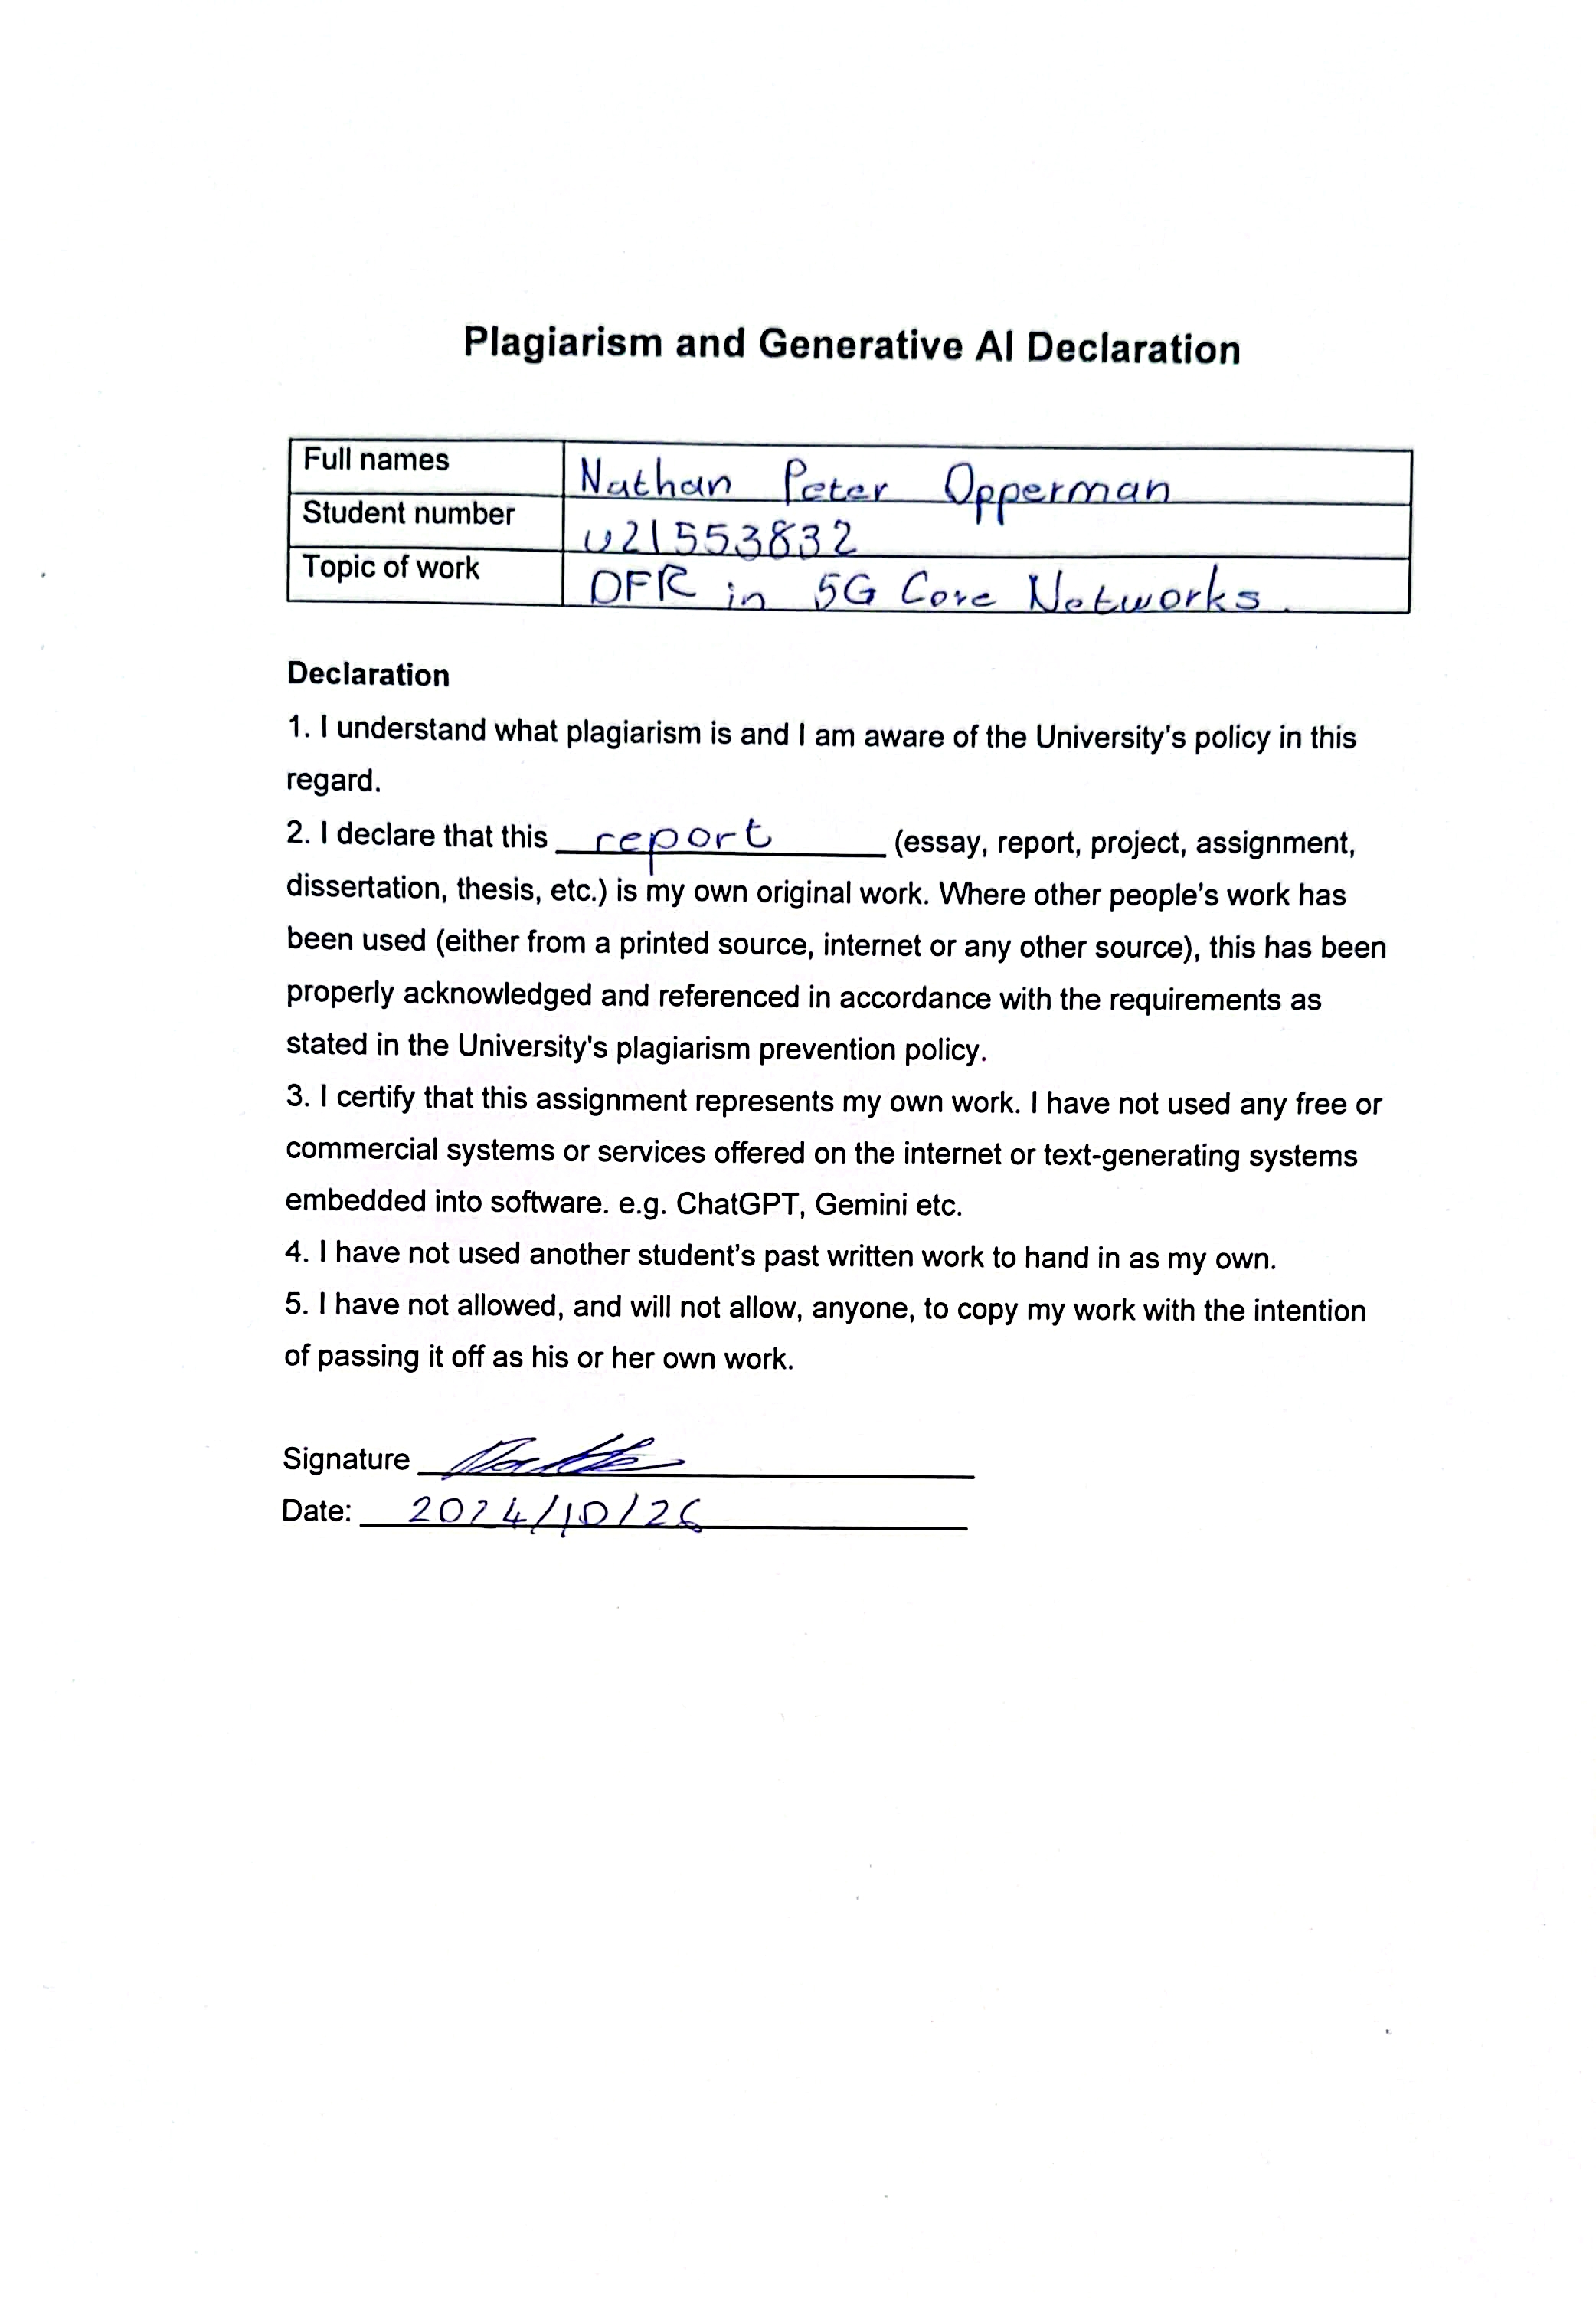 Plagiarism and Generative AI Declaration
Full names Nathan Peter Opperman
Student number u21553832
Topic of work DFR in 5G Core Networks.
Declaration
1. I understand what plagiarism is and I am aware of the University's policy in this
regard.
2. I declare that this report (essay, report, project, assignment,
dissertation, thesis, etc.) is my own original work. Where other people's work has
been used (either from a printed source, internet or any other source), this has been
properly acknowledged and referenced in accordance with the requirements as
stated in the University's plagiarism prevention policy.
3. I certify that this assignment represents my own work. I have not used any free or
commercial systems or services offered on the internet or text-generating systems
embedded into software. e.g. ChatGPT, Gemini etc.
4. I have not used another student's past written work to hand in as my own.
5. I have not allowed, and will not allow, anyone, to copy my work with the intention
of passing it off as his or her own work.
Signature
Date: 2024/10/26